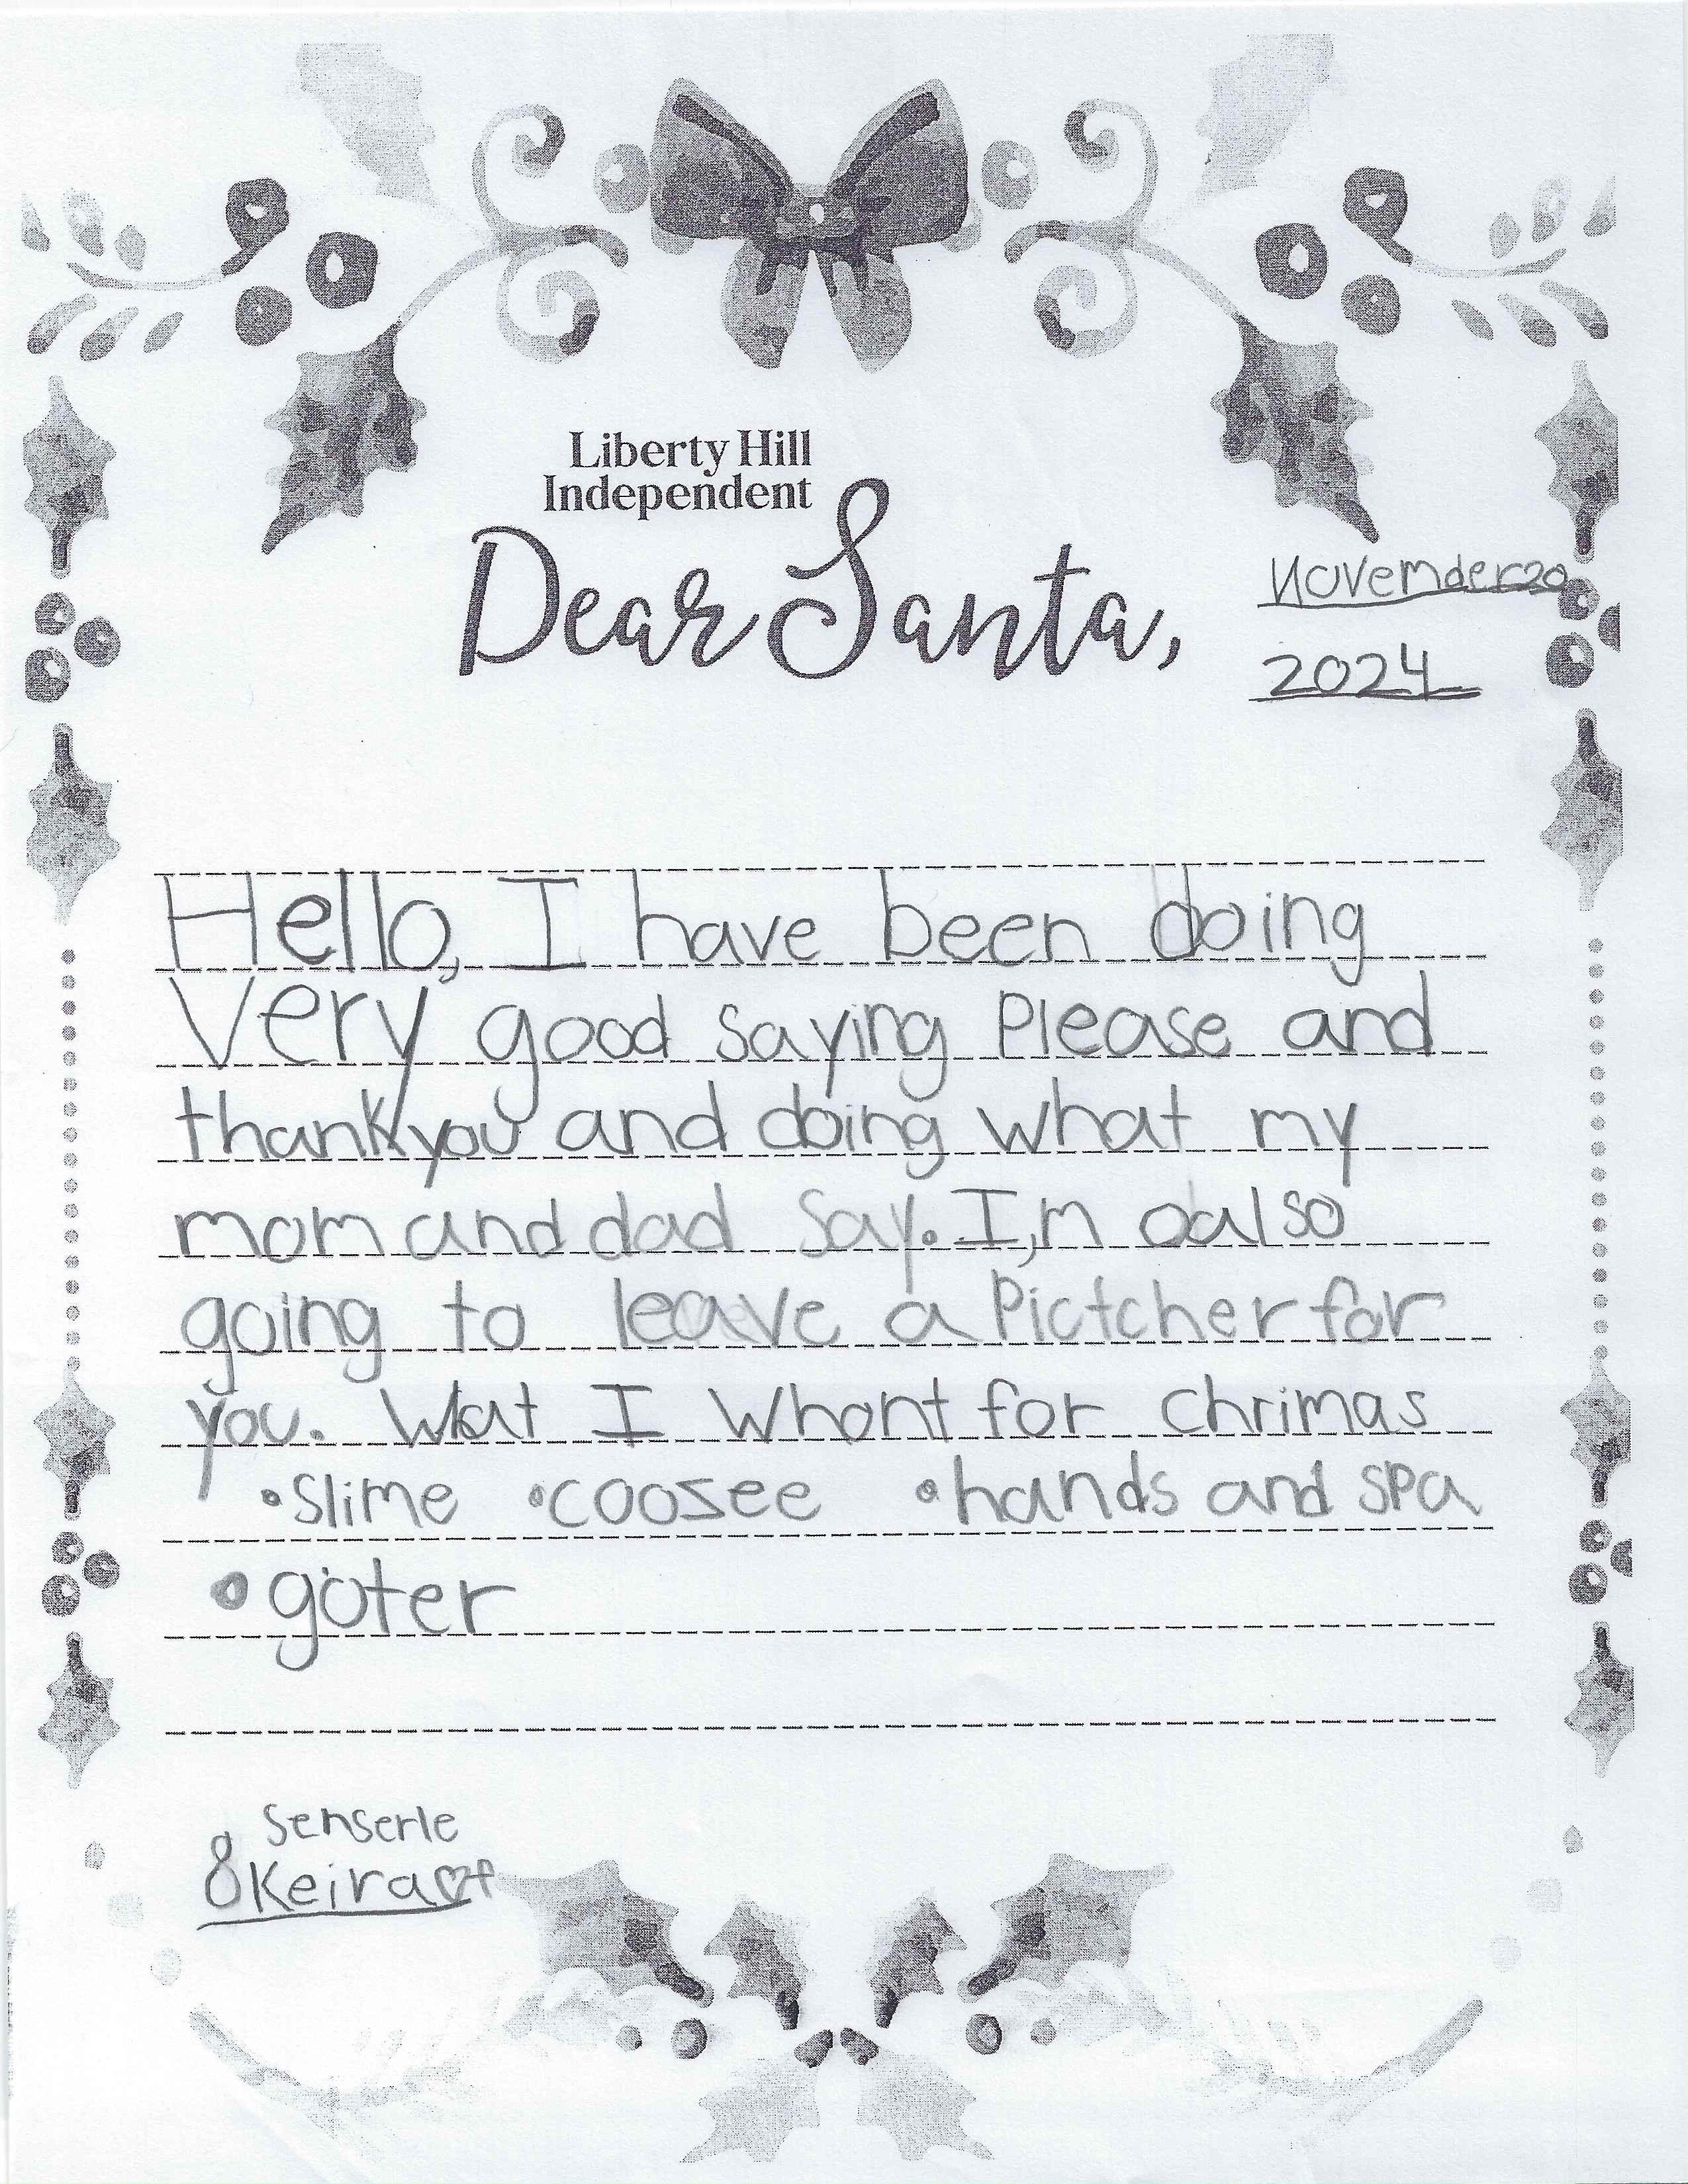 Liberty Hill
Independent
Dear Santa,
Novemder 20
2024
Hello, I have been doing
Very good saying Please and
thankyou and doing what my
mom and dad say. I,m oalso
going to leave a Pictcher for
you. What I Whont for Chrimas
•Slime •coozee •hands and spa
•goter
Senserle
Keira